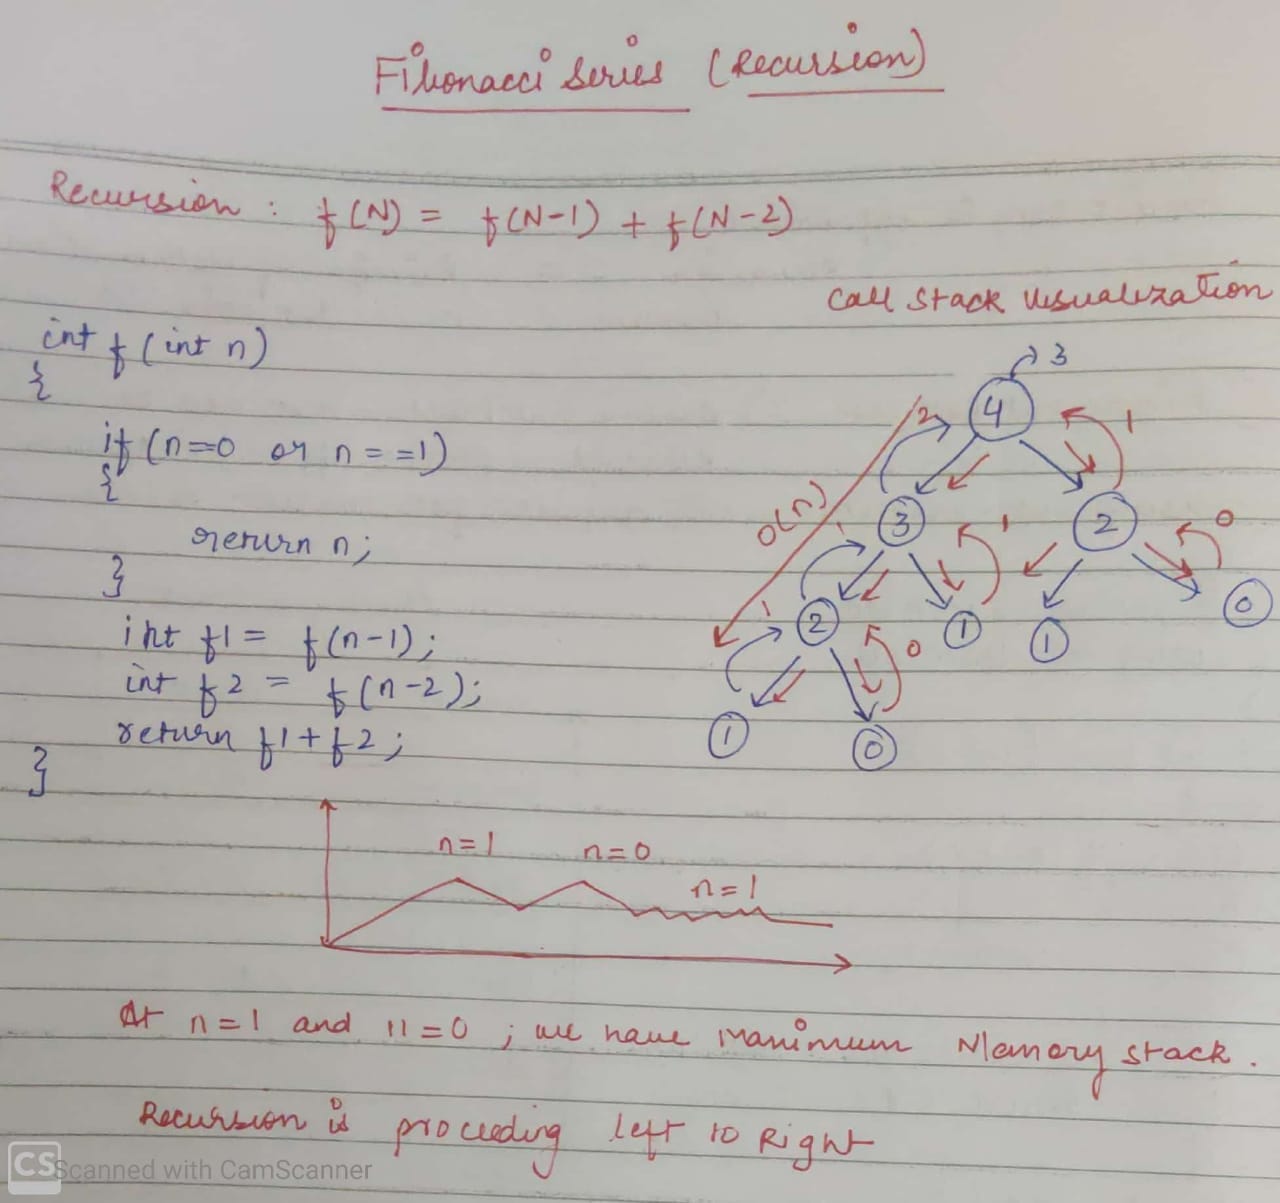 Fibonacci Series (Recursion)
Recursion : f(N) = f(N-1) + f(N-2)
Call Stack Visualization
int f(int n)
{
if (n==0 or n==1)
{
return n;
}
int f1 = f(n-1);
int f2 = f(n-2);
return f1+f2;
}
3
4
2
1
O(n)
3
2
1
1
0
1
2
1
1
0
0
1
0
n=1
n=0
n=1
At n=1 and n=0 ; we have Maximum Memory stack.
Recursion is proceeding left to Right
CS Scanned with CamScanner